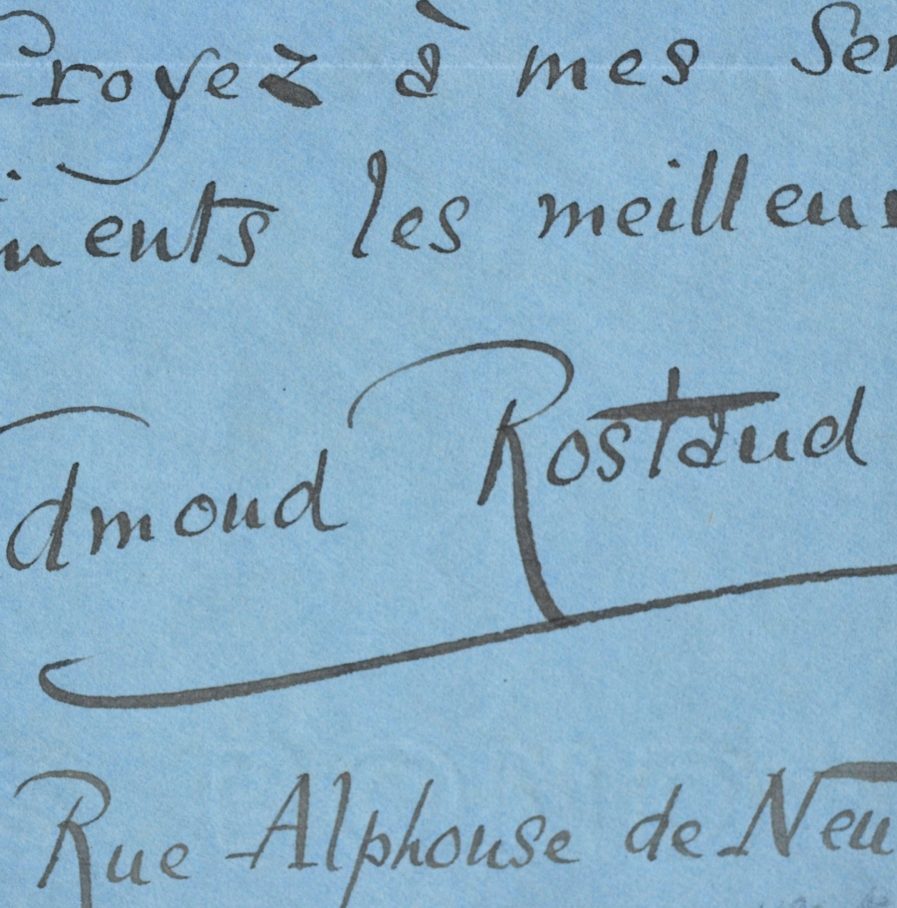 Croyez à mes sen
iments les meilleur
dmond Rostand
Rue Alphonse de Neu